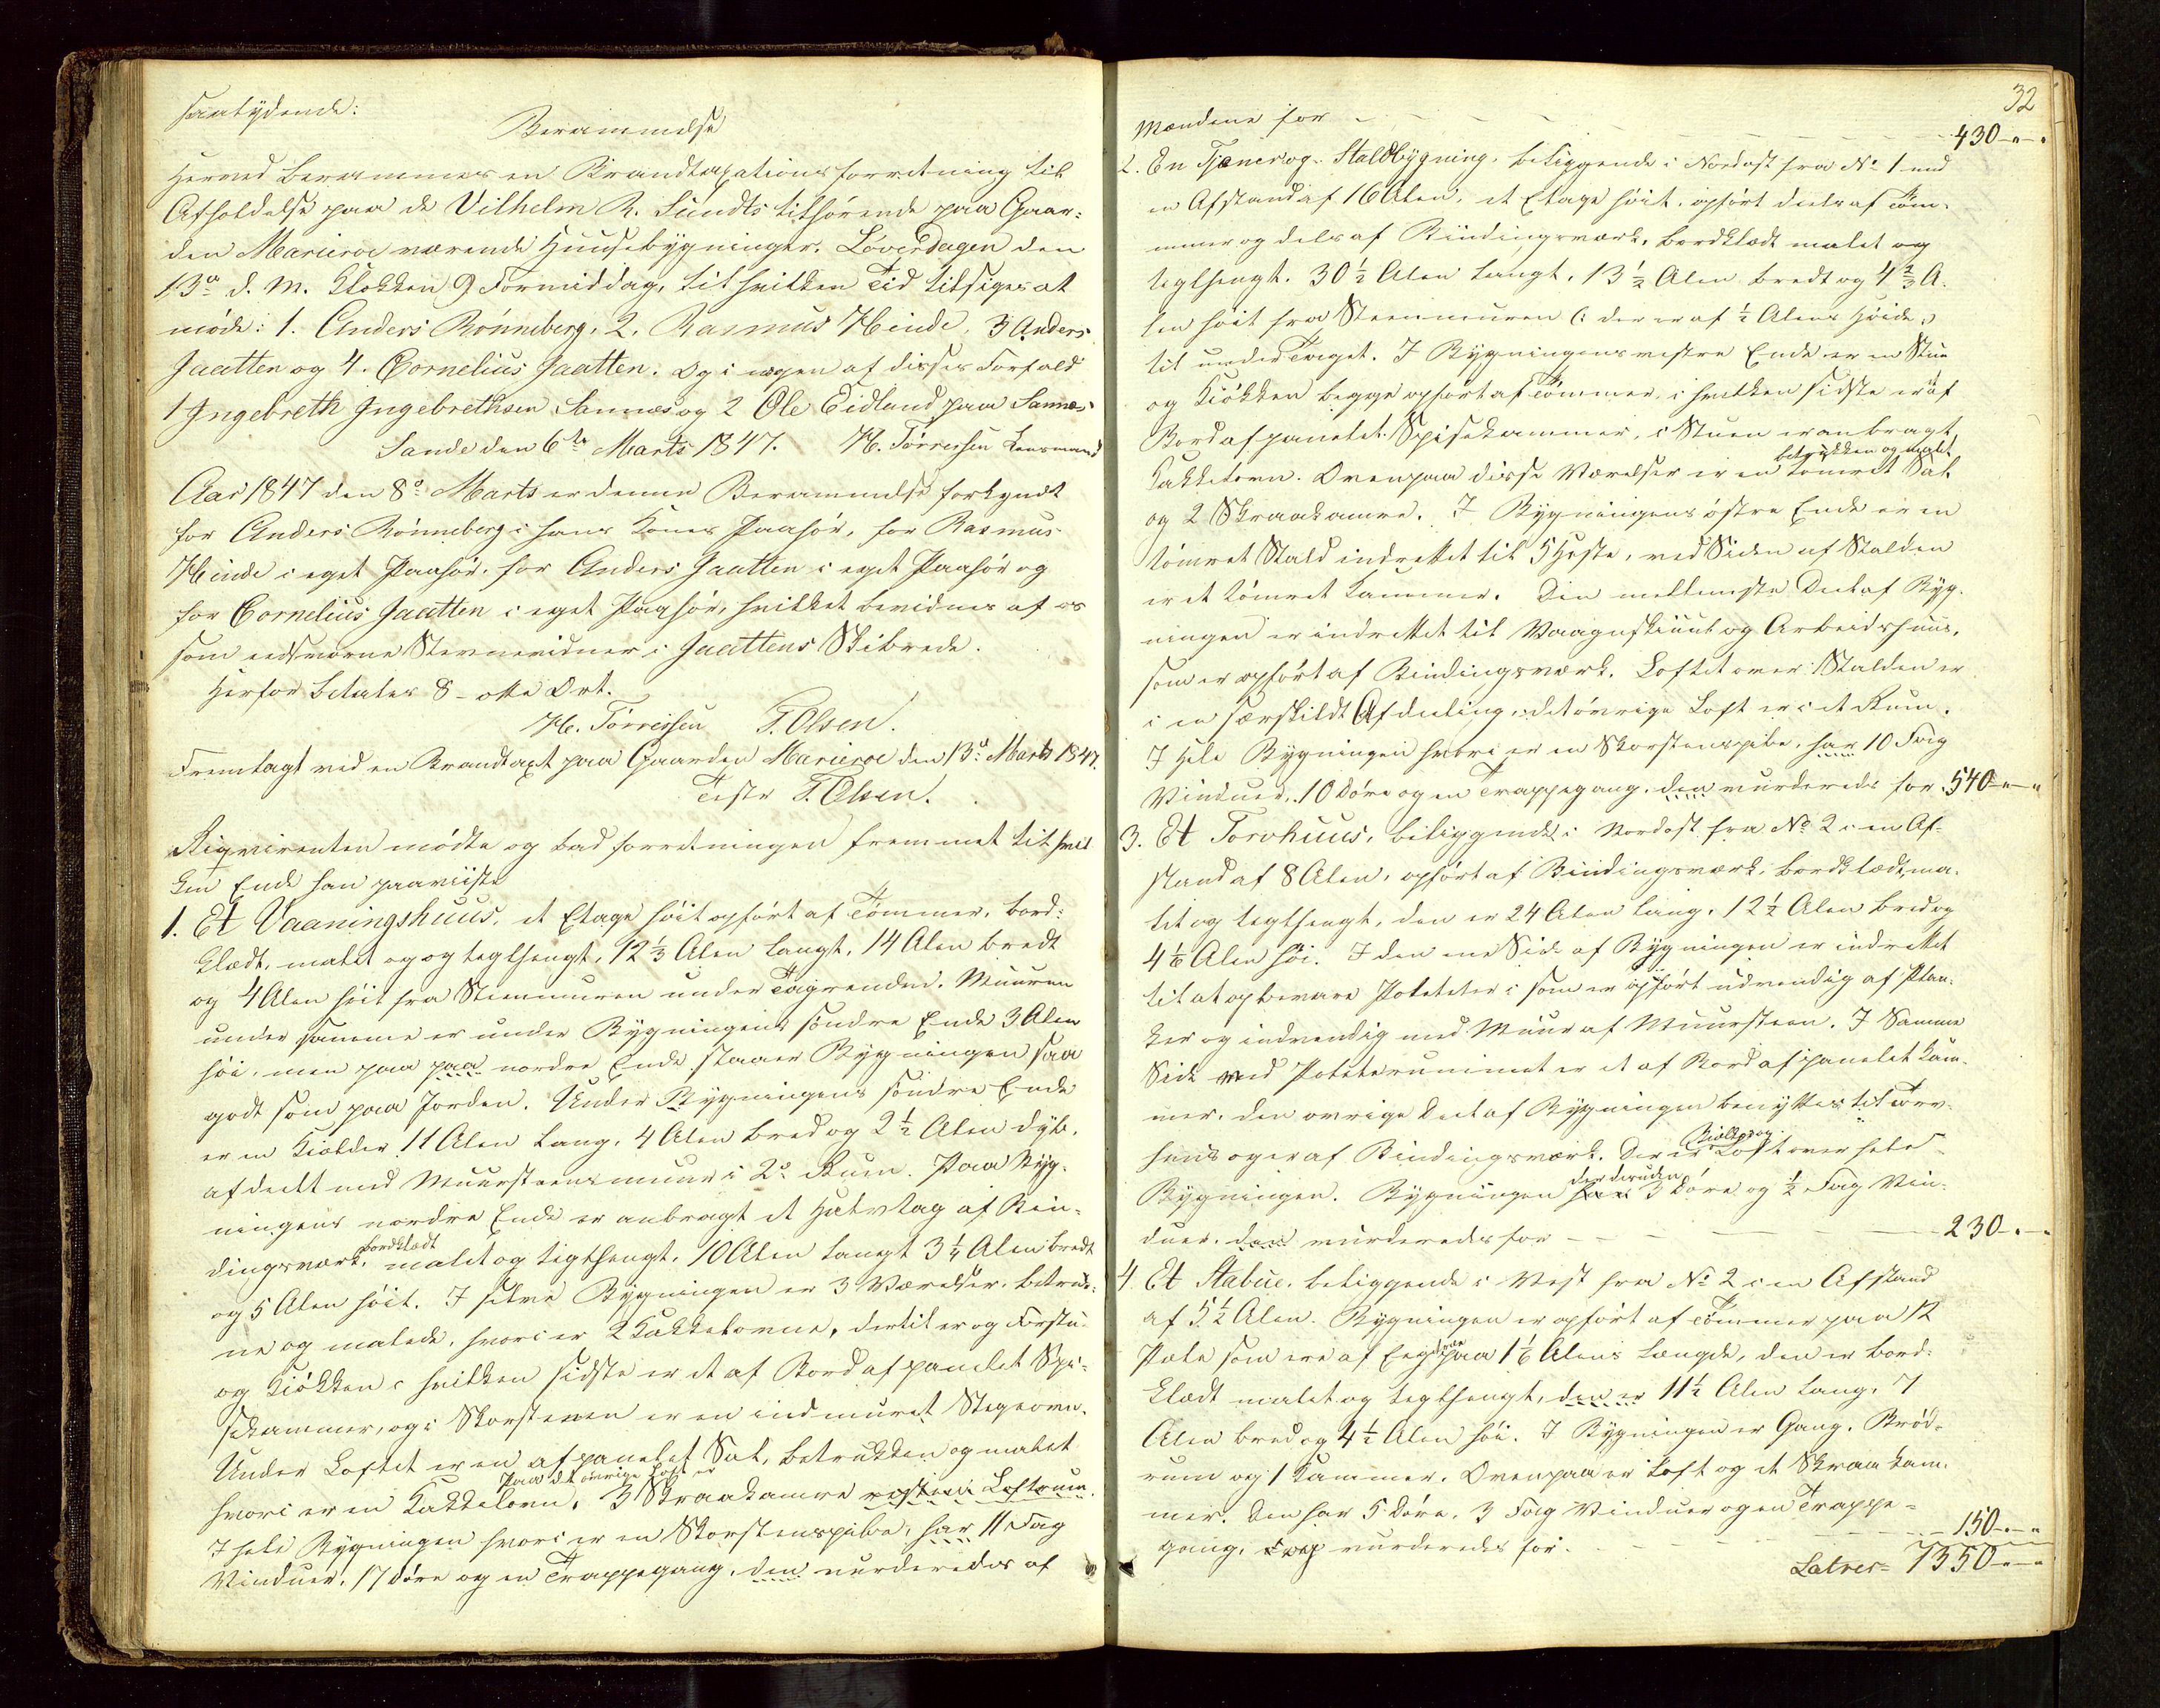 saalydende:
Berammelse
Herved berammes en Brandtaxationsforretning til
Afholdelse paa de Vilhelm R. Sundts tilhørende paa Gaar-
den Marieroe værende Huusebygninger. Løverdagen den
13de d. M. Klokken 9 Formiddag, til hvilken Tid tilsiges at
møde: 1. Anders Rønneberg, 2. Rasmus Hinde, 3 Anders
Jaatten og 4. Cornelius Jaatten. Og i nogen af disses Forfald
1 Ingebreth Ingebrethsen Sannes og 2 Ole Eidland paa Sannes
Sande den 6te Marts 1847. H. Tørressen Lensmand
Aar 1847 den 8de Marts er denne Berammelse forkyndt
for Anders Rønneberg i hans Kones Paahør, for Rasmus
Hinde i eget Paahør, for Anders Jaatten i eget Paahør og
for Cornelius Jaatten i eget Paahør, hvilket bevidnes af os
som eedsvorne Stevnevidner i Jaattens Skibrede.
Herfor betales 8 – otte Ort.
H. Tørressen T. Olsen.
Fremlagt ved en Brandtaxt paa Gaarden Marieroe den 13de Marts 1847.
Teste T. Olsen.
Reqvirenten mødte og bad forretningen fremmet til hvil
ken Ende han paaviiste
1. Et Vaaningshuus, et Etage høit opført af Tømmer, bord-
klædt, malet og og teglhængt, 12 1/3 Alen langt, 14 Alen bredt
og 4 Alen høit fra Steenmuren under Tagrenden. Muuren
under samme er under Bygningens søndre Ende 3 Alen
høi, men paa paa nordre Ende staaer Bygningen saa
godt som paa Jorden. Under Bygningens søndre Ende
er en Kielder 11 Alen lang, 4 Alen bred og 2 1/2 Alen dyb,
afdeelt med Muursteensmuur i 2de Rum. Paa Byg-
ningens nordre Ende er anbragt et Halvtag af Bin-
dingsværk, bordklædt malet og teglhængt, 10 Alen langt 3 1/4 Alen bredt
og 5 Alen høit. I selve Bygningen er 3 Værelser, betruk-
ne og malede, hvori er 2 Kakkelovne, dertil er og Forstu-
ue og Kiøkken i hvilken sidste er et af Bord afpanelet Spi-
sekammer, og i Skorstenen er en indmuret Stegeovn.
Under Loftet er en afpanelet Sal, betrukken og malet
hvori er en Kakkelovn. Paa det øvrige Loft er 3 Skraakamre Loftrum.
I hele Bygningen hvori er en Skorstenspibe, har 11 Fag
Vinduer, 17 Døre og en Trappegang, den vurderedes af
32
Mændene for – 430 – " – "
2. En Tjener og Staldbygning, beliggende i Nordost fra No 1 ved
en Afstand af 16 Alen, et Etage høit, opført deels af Tøm-
mer og dels af Bindingsværk, bordklædt malet og
teglhængt. 30 1/2 Alen langt, 13 1/2 Alen bredt og 4 2/3 A-
len høit fra Steenmuren (: der er af 1/2 Alens Høide,)
til under Taget. I Bygningens vestre Ende er en Stue
og Kiøkken begge opført af Tømmer, i hvilken sidste er af
Bord afpanelet Spisekammer, i Stuen er anbragt
Kakkelovn. Ovenpaa disse Værelser er en betrukken og malet tømret Sal
og 2 Skraakamre. I Bygningens østre Ende er en
tømret Stald indrettet til 5 Heste, ved Siden af Stalden
er et tømret Kammer. Den mellemste Deel af Byg-
ningen er indrettet til Vaagnskiuul og Arbeidshuus,
som er opført af Bindingsværk. Loftet over Stalden er
i en særskildt Afdeeling, det øvrige Loft er i et Rum.
I hele Bygningen hvori er en Skorstenspibe, har 10 Fag
Vinduer, 10 Døre og en Trappegang, den vurderedes for 540 – " – "
3. Et Torvhuus, beliggende i Nordost fra No 2 i en Af-
stand af 8 Alen, opført af Bindingsværk, bordklædt, ma-
let og teglhængt, den er 24 Alen lang, 12 1/2 Alen bred og
4 1/6 Alen høi. I den ene Side af Bygningen er indrettet
til at opbevare Poteteter i som er opført udvendig af Plan-
ker og indvendig med Muur af Muursteen. I samme
Side ved Poteterummet er et af Bord afpanelet Kam-
mer, den øvrige Deel af Bygningen benyttes til Torv-
huus og er af Bindingsværk. Der er Loft over hele
Bygningen. Bygningen har desuden 3 Døre og 1/2 Fag Vin-
duer, den vurderedes for – 230 – " – "
4. Et Stabue, beliggende i Vest fra No 2 i en Afstand
af 5 1/2 Alen. Bygningen er opført af Tømmer paa 12
Pæle som ere af Eeg paa 1 1/6 Alens Længde, den er bord-
klædt malet og teglhængt, den er 11 1/2 Alen lang, 7
Alen bred og 4 1/2 Alen høi. I Bygningen er Gang, Brød-
rum og 1 Kammer. Ovenpaa er Loft og et Skraakam-
mer. Den har 5 Døre, 3 Fag Vinduer og en Trappe-
gang, vurderedes for – 150 – " – "
Latres – 1350 – " – "